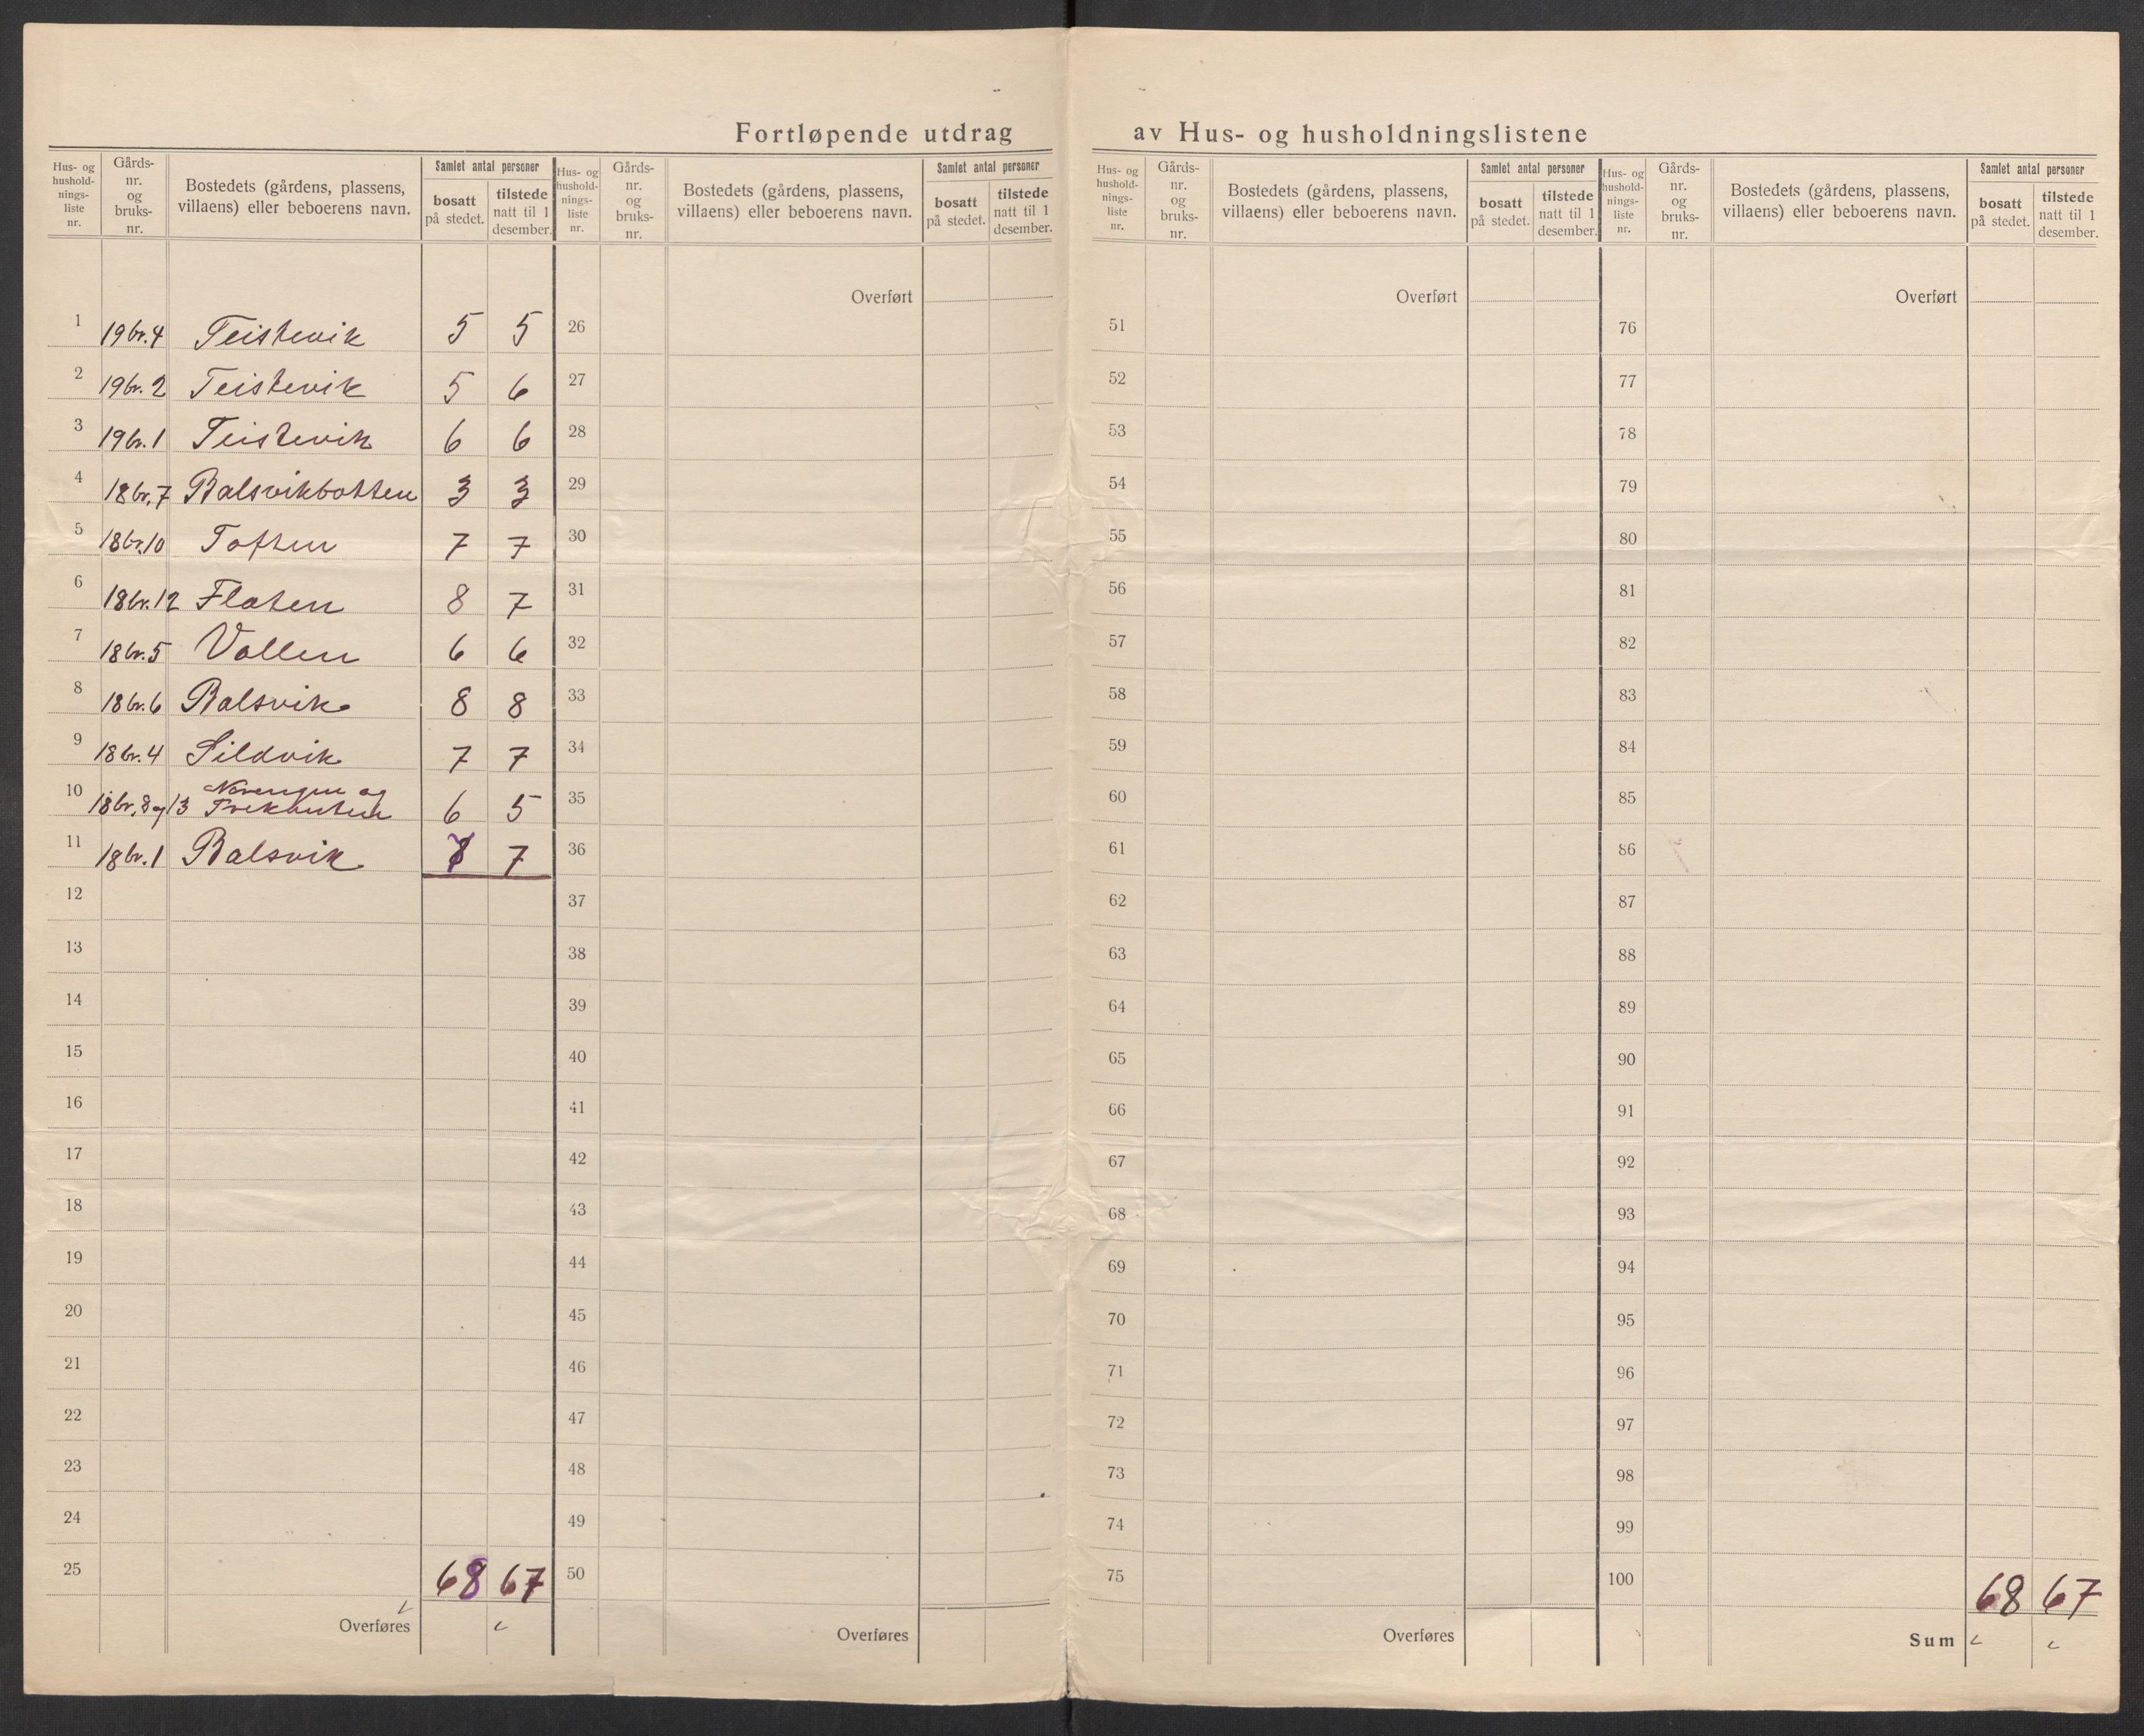 Fortløpende utdrag av Hus- og husholdningslistene
Hus- og husholdnings-liste nr. Gårds-nr. og bruks-nr. Bostedets (gårdens, plassens, villaens) eller beboerens navn. Samlet antal personer bosatt på stedet. tilstede natt til 1 desember.
Hus- og husholdnings-liste nr. Gårds-nr. og bruks-nr. Bostedets (gårdens, plassens, villaens) eller beboerens navn. Samlet antal personer bosatt på stedet. tilstede natt til 1 desember.
Hus- og husholdnings-liste nr. Gårds-nr. og bruks-nr. Bostedets (gårdens, plassens, villaens) eller beboerens navn. Samlet antal personer bosatt på stedet. tilstede natt til 1 desember.
Hus- og husholdnings-liste nr. Gårds-nr. og bruks-nr. Bostedets (gårdens, plassens, villaens) eller beboerens navn. Samlet antal personer bosatt på stedet. tilstede natt til 1 desember.
Overført Overført Overført
1 19 br. 4 Teistevik 5 5 26 51 76
2 19 br. 2 Teistevik 5 6 27 52 77
3 19 br. 1 Teistevik 6 6 28 53 78
4 18 br. 7 Balsvikbotten 3 3 29 54 79
5 18 br. 10 Toften 7 7 30 55 80
6 18 br. 12 Flaten 8 7 31 56 81
7 18 br. 5 Vollen 6 6 32 57 82
8 18 br. 6 Balsvik 8 8 33 58 83
9 18 br. 4 Sildvik 7 7 34 59 84
10 18 br. 8 og 13 og 6 5 35 60 85
11 18 br. 1 Balsvik 7 7 36 61 86
12 37 62 87
13 38 63 88
14 39 64 89
15 40 65 90
16 41 66 91
17 42 67 92
18 43 68 93
19 44 69 94
20 45 70 95
21 46 71 96
22 47 72 97
23 48 73 98
24 49 74 99
25 68 67 50 75 100 68 67
Overføres Overføres Overføres Sum